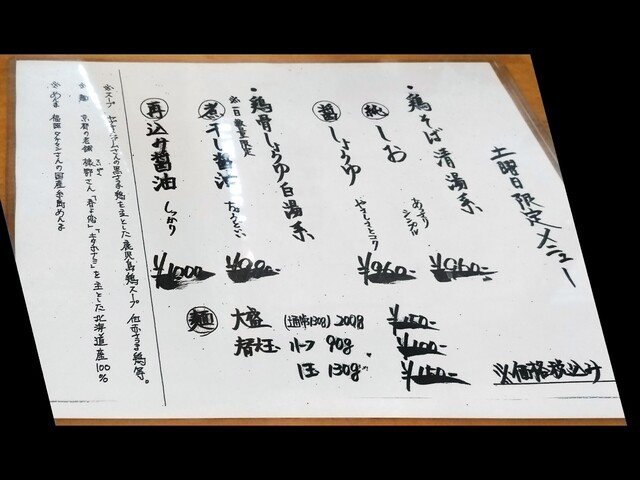 土曜日限定メニュー
・鶏そば清湯系
純 しお あっさりシンプル ¥960-
醤 しょうゆ やさしさとコク ¥960-
・鶏骨しょうゆ白湯系
※一日数量限定
煮干し醤油 ちょうどいい
再込み醤油 しっかり ¥1000-
麺 大盛 (通常130g) 200g ¥150-
替玉 ハーフ 90g ¥100-
1玉 130g ¥150-
※価格税込み
※スープ 黒さつま鶏を主とした鹿児島鶏スープ
※麺 京都の老舗 麺 「春よ恋」 を主とした北海道産100%
※めんま 福岡 さんの国産糸島めんま